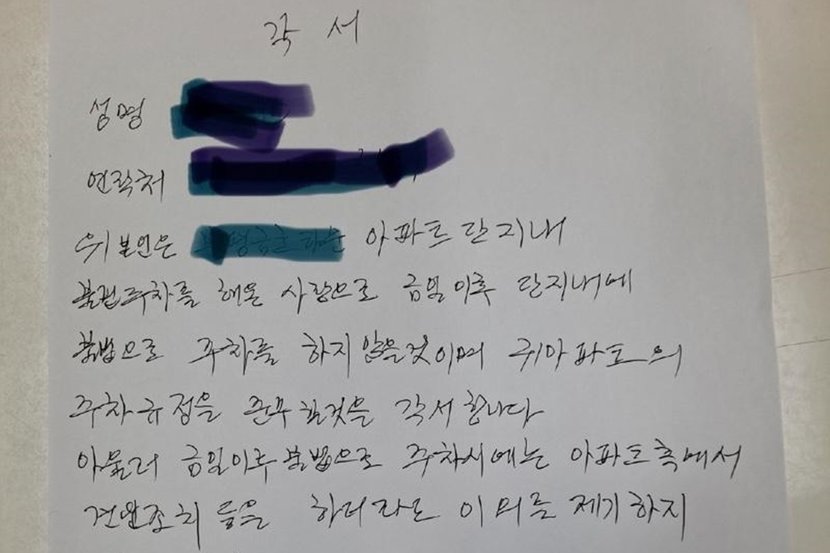 각서
성명
연락처
위 본인은 아파트 단지내
불법주차를 해온 사람으로 금일이후 단지내에
불법으로 주차를 하지 않을것이며 귀아파트의
주차규정을 준수할것을 각서합니다
아울러 금일이후 불법으로 주차시에는 아파트측에서
견인조치 등을 하더라도 이의를 제기하지